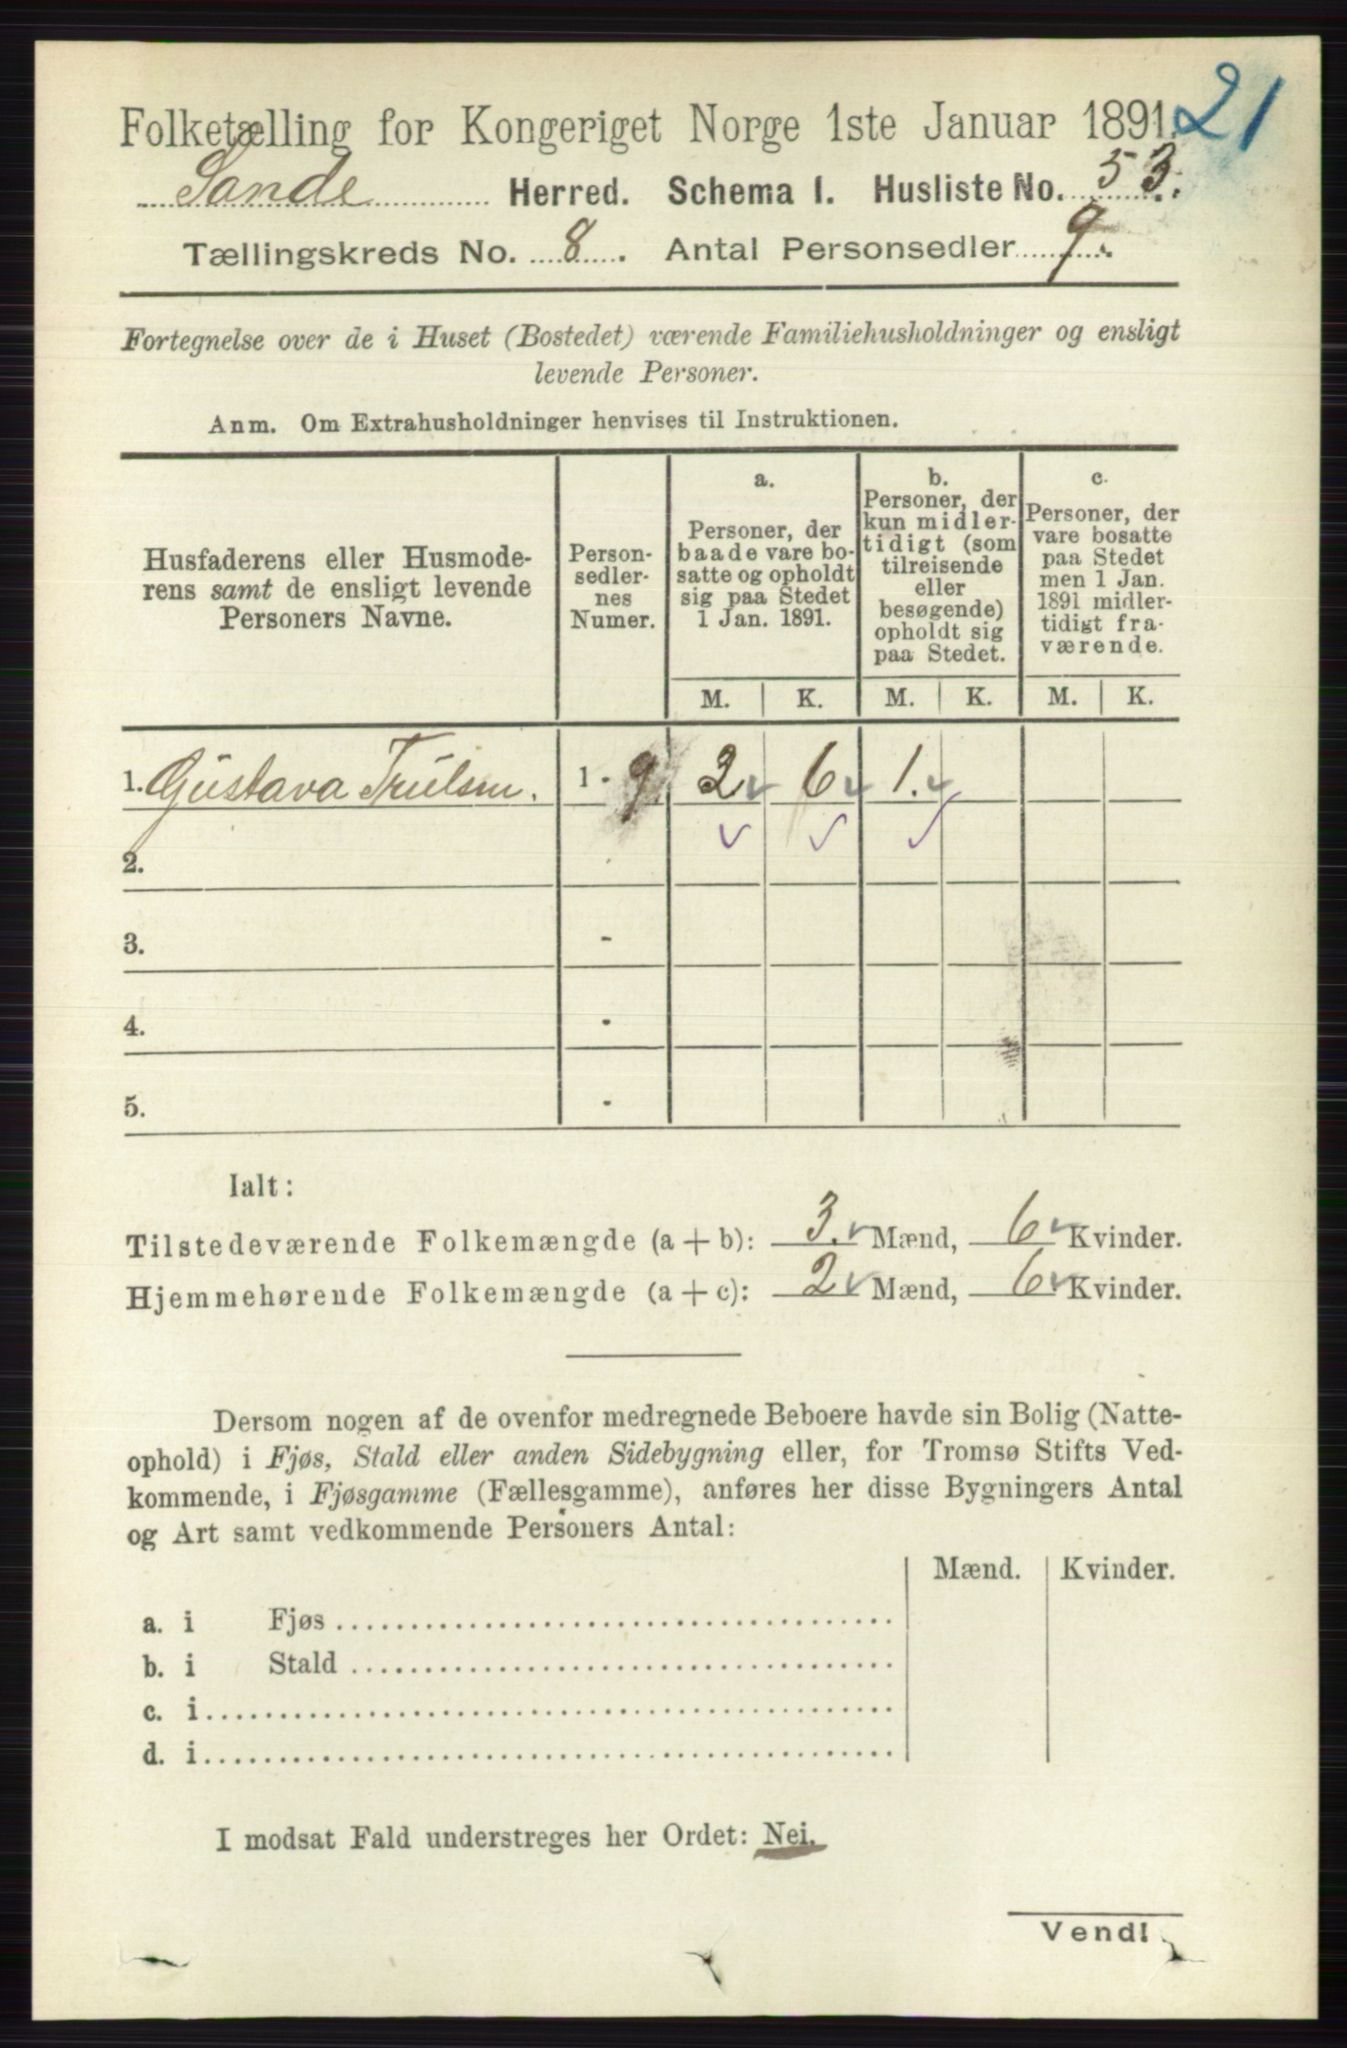 21
Folketælling for Kongeriget Norge 1ste Januar 1891.
Sande Herred. Schema I. Husliste No. 53.
Tællingskreds No. 8. Antal Personsedler 9.
Fortegnelse over de i Huset (Bostedet) værende Familiehusholdninger og ensligt
levende Personer.
Anm. Om Extrahusholdninger henvises til Instruktionen.
Husfaderens eller Husmode-
rens samt de ensligt levende
Personers Navne.
Person-
sedler-
nes
Numer.
a.
Personer, der
baade vare bo-
satte og opholdt
sig paa Stedet
1 Jan. 1891.
b.
Personer, der
kun midler-
tidigt (som
tilreisende
eller
besøgende)
opholdt sig
paa Stedet.
c.
Personer, der
vare bosatte
paa Stedet
men 1 Jan.
1891 midler-
tidigt fra-
værende.
M. K. M. K. M. K.
1. Gustava Trulsen. 1 - 9. 2 6 1.
2. -
3. -
4. -
5. -
Ialt:
Tilstedeværende Folkemængde (a + b): 3. Mænd, 6 Kvinder.
Hjemmehørende Folkemængde (a + c): 2 Mænd, 6 Kvinder.
Dersom nogen af de ovenfor medregnede Beboere havde sin Bolig (Natte-
ophold) i Fjøs, Stald eller anden Sidebygning eller, for Tromsø Stifts Ved-
kommende, i Fjøsgamme (Fællesgamme), anføres her disse Bygningers Antal
og Art samt vedkommende Personers Antal:
Mænd. Kvinder.
a. i Fjøs
b. i Stald
c. i
d. i
I modsat Fald understreges her Ordet: Nei.
Vend!